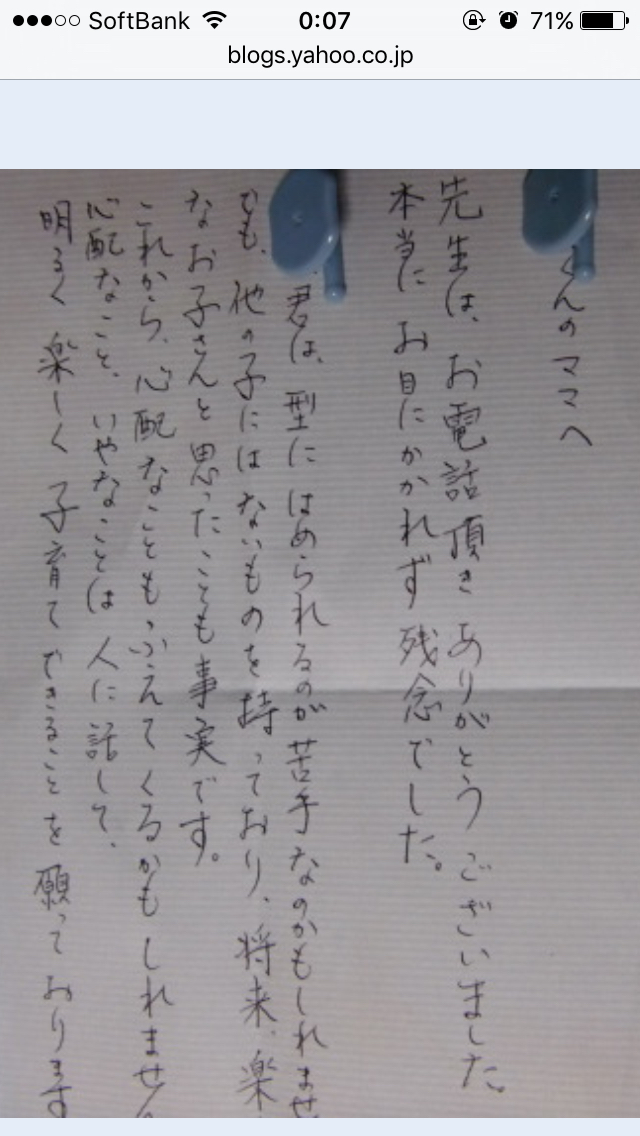 SoftBank
0:07
71%
blogs.yahoo.co.jp
くんのママへ
先生は、お電話頂きありがとうございました。
本当にお目にかかれず残念でした。
君は、型にはめられるのが苦手なのかもしれませ
でも、他の子にはないものを持っており、将来、楽
なお子さんと思ったことも事実です。
これから、心配なこともふえてくるかもしれません
心配なこと、いやなことは人に話して、
明るく楽しく子育てできることを願っております